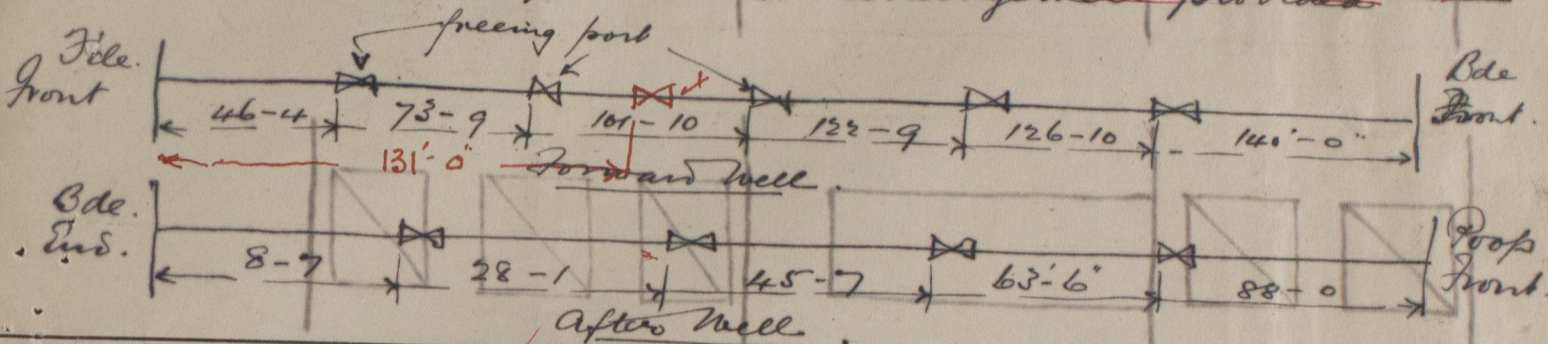 provided
freeing port
Fcle. Front
Bde Front.
46-4 73-9 101-10 122-9 126-10 140'-0"
131'-0"
Forward Well.
Bde. End.
Poop Front.
8-7 28-1 45-7 63'-6" 88-0
After Well.